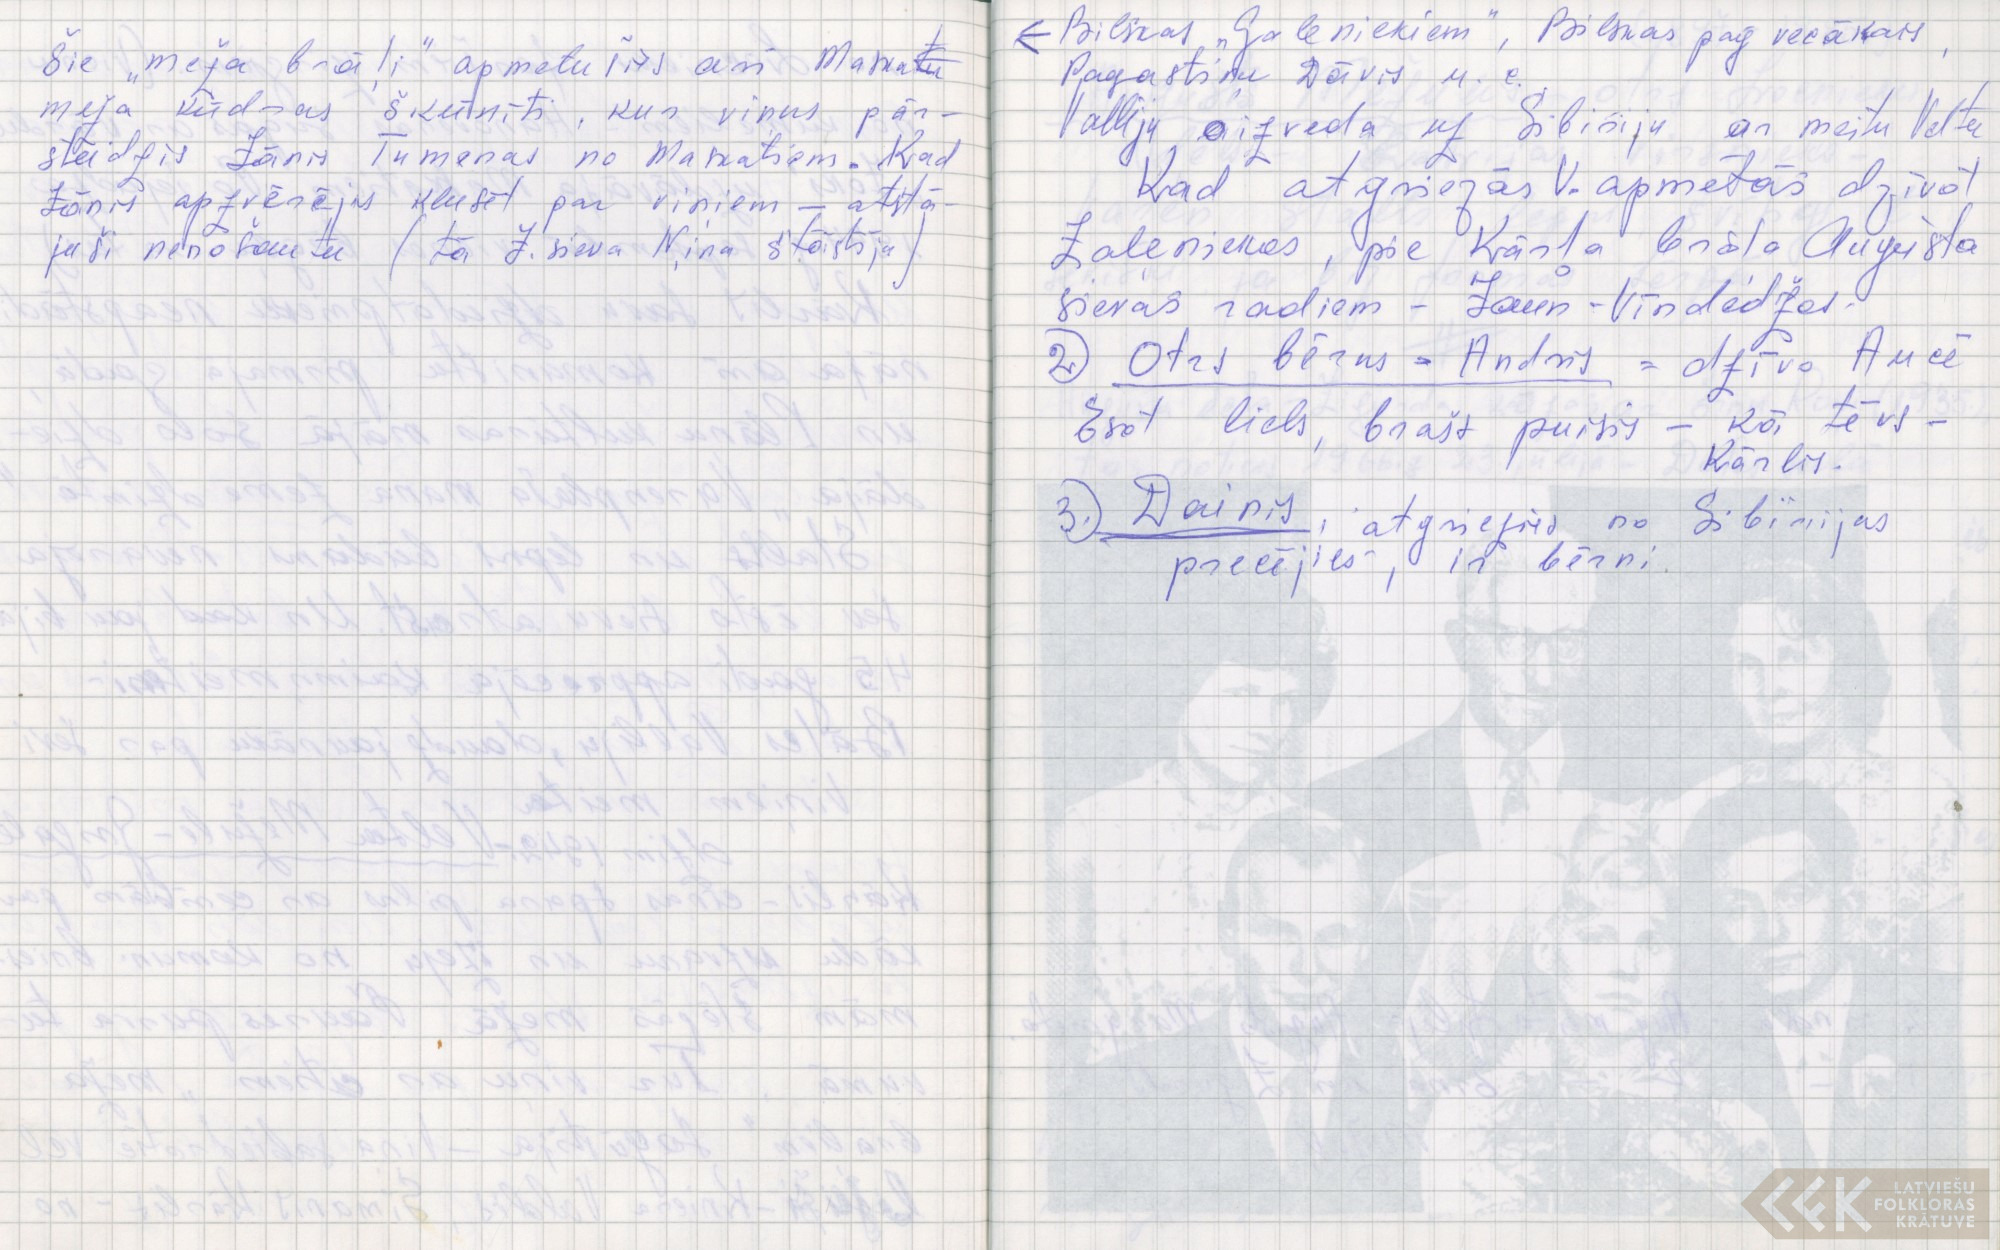 Šie „meža brāļi" apmetušies arī Maskatu
meža kūdras šķūnītī, kur viņus pār-
steidzis Jānis Tumenas no Maskatiem. Kad
Jānis apzvērējis klusēt par viņiem – atstā-
juši nenošautu (tā J. sieva Ņina stāstīja)
← Bilskas „Galeniekiem", Bilskas pag vecākais,
Pagastiņu Dāvis u. c.
Valliju aizveda uz Sibīriju ar meitu Veltu
Kad atgriezās V. apmetās dzīvot
Zaļeniekos, pie Kārļa brāļa Augusta
sievas radiem – Jaun-Vindēdžos.
2) Otrs bērns = Andris = dzīvo Aucē
Esot liels, brašs puisis – kā tēvs –
Kārlis.
3.) Dainis, atgriezies no Sibīrijas
precējies, ir bērni.
LATVIEŠU
FOLKLORAS
KRĀTUVE